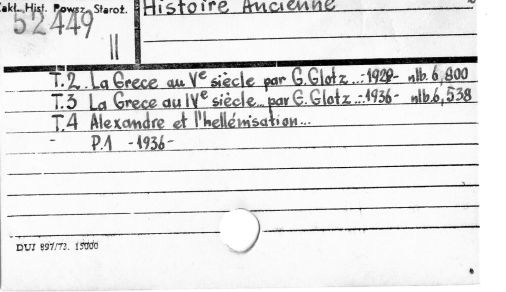 Zakł. Hist. Powsz. Staroż.
Histoire Ancienne
52449
II
T.2. La Grece au Vᵉ siècle par G. Glotz ..-1929- nlb. 6,800
T.3 La Grece au IVᵉ siècle... par G. Glotz ..-1936- nlb. 6,538
T.4 Alexandre et l'hellénisation...
- P.1 -1936-
DUJ 897/73. 15000